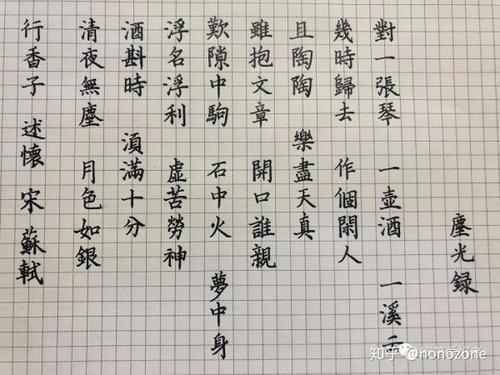 行香子 述懷 宋 蘇軾
清夜無塵 月色如銀
酒斟時 須滿十分
浮名浮利 虛苦勞神
歎隙中駒 石中火 夢中身
雖抱文章 開口誰親
且陶陶 樂盡天真
幾時歸去 作個閑人
對一張琴 一壺酒 一溪
塵光録
知乎 @nonozone